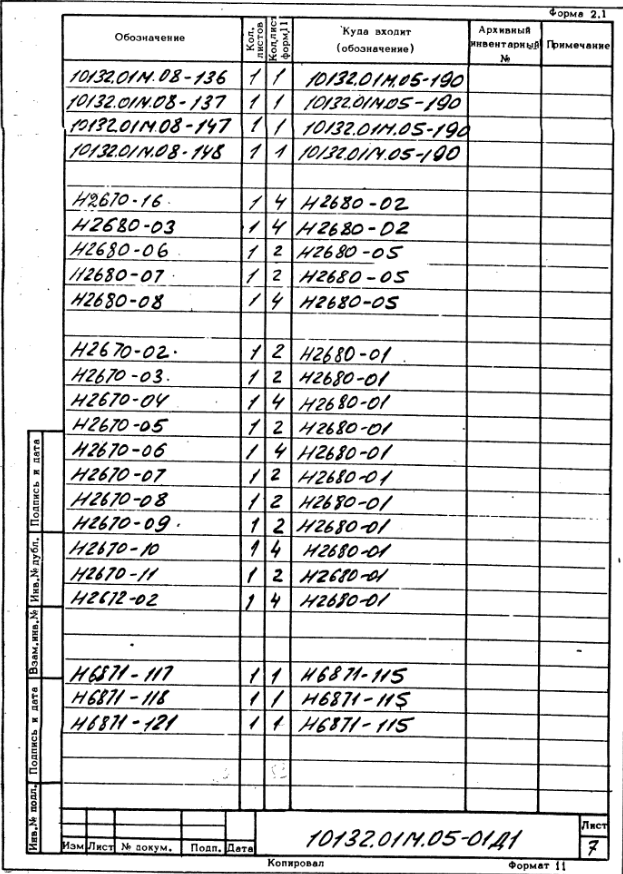 Форма 2.1
Обозначение Кол. листов Кол.лист форм.11 Куда входит (обозначение) Архивный инвентарный № Примечание
10132.01М.08-136 1 1 10132.01М.05-190
10132.01М.08-137 1 1 10132.01М.05-190
10132.01М.08-147 1 1 10132.01М.05-190
10132.01М.08-148 1 1 10132.01М.05-190
Н2670-16 1 4 Н2680-02
Н2680-03 1 4 Н2680-02
Н2680-06 1 2 Н2680-05
Н2680-07 1 2 Н2680-05
Н2680-08 1 4 Н2680-05
Н2670-02 1 2 Н2680-01
Н2670-03 1 2 Н2680-01
Н2670-04 1 4 Н2680-01
Н2670-05 1 2 Н2680-01
Н2670-06 1 4 Н2680-01
Н2670-07 1 2 Н2680-01
Н2670-08 1 2 Н2680-01
Н2670-09 1 2 Н2680-01
Н2670-10 1 4 Н2680-01
Н2670-11 1 2 Н2680-01
Н2672-02 1 4 Н2680-01
Н6871-117 1 1 Н6871-115
Н6871-118 1 1 Н6871-115
Н6871-121 1 1 Н6871-115
Инв.№ подл. Подпись и дата Взам.инв.№ Инв.№ дубл. Подпись и дата
10132.01М.05-01Д1
Лист
7
Изм Лист № докум. Подп. Дата
Копировал Формат 11